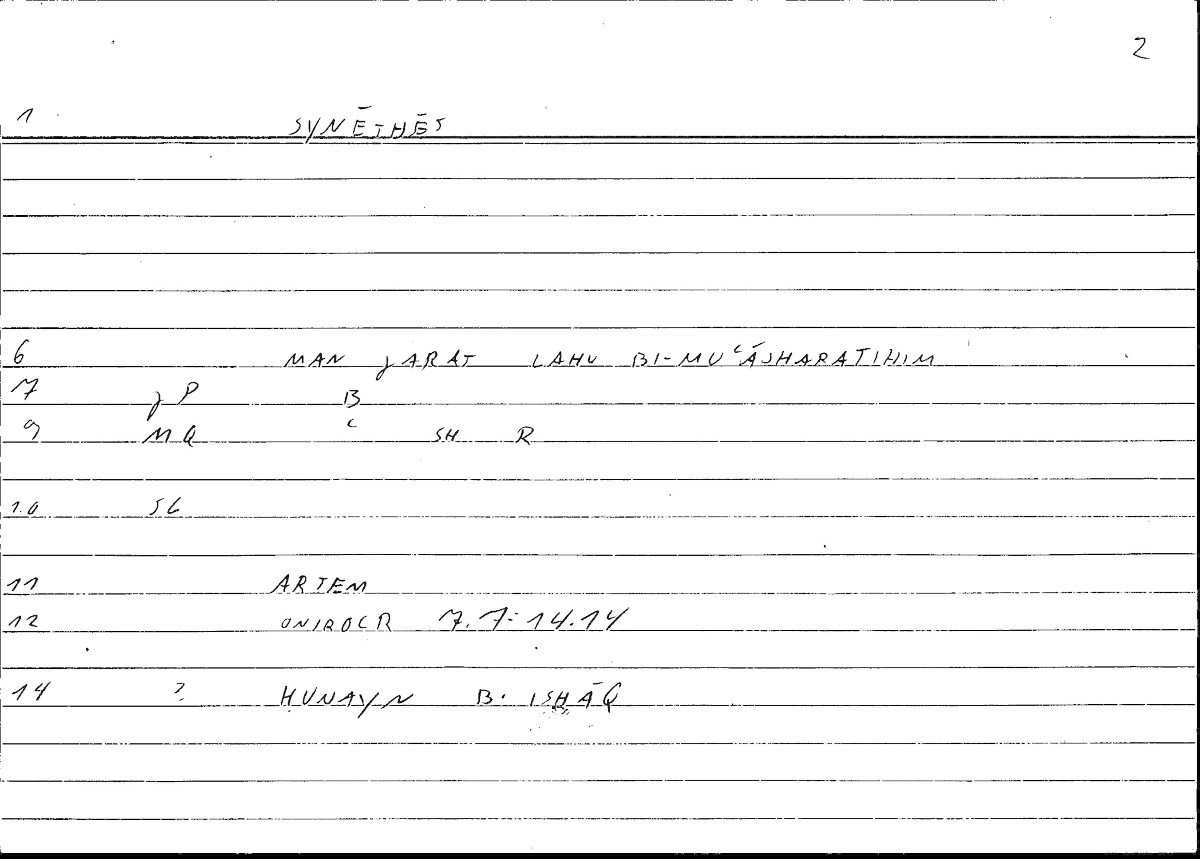 2
1 SYNĒTHĒS
6 MAN JARAT LAHU BI-MUʿĀSHARATIHIM
7 J P B
9 MQ ʿ SH R
10 SG
11 ARTEM
12 ONIROCR 7.7=14.14
14 ? ḤUNAYN B. ISḤĀQ